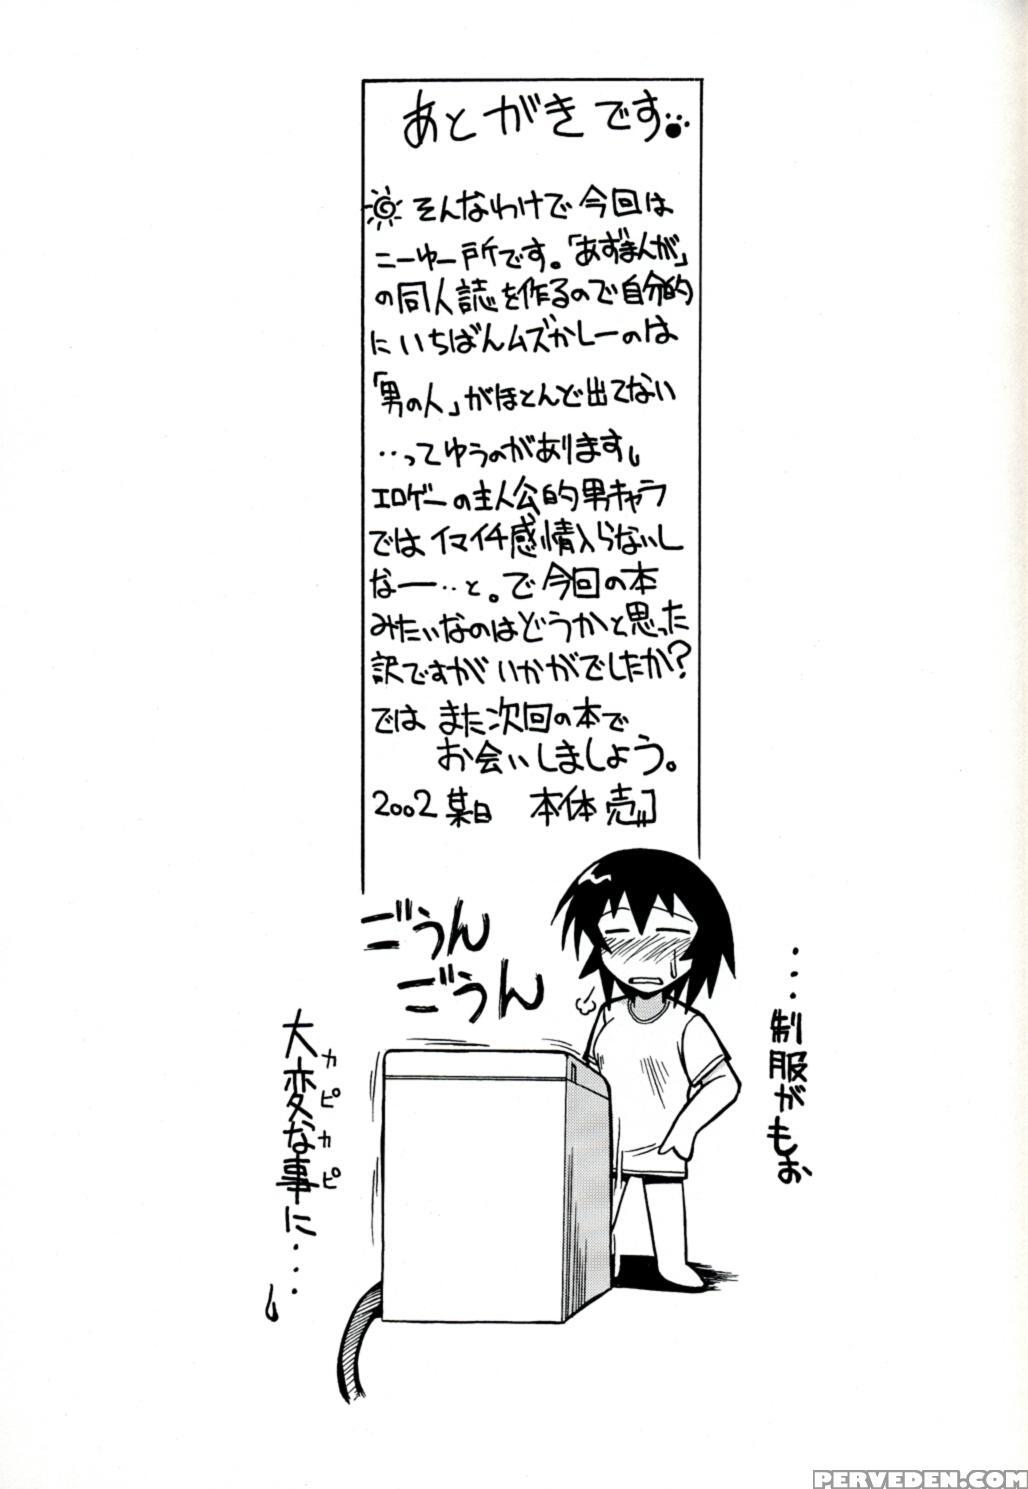 あとがきです
そんなわけで今回は
こーゆー所です。「あずまんが」
の同人誌を作るので自分的
にいちばんムズかしーのは
「男の人」がほとんど出てない
‥ってゆうのがあります。
エロゲーの主人公的男キャラ
ではイマイチ感情入らないし
なー‥と。で今回の本
みたいなのはどうかと思った
訳ですがいかがでしたか?
では また次回の本で
お会いしましょう。
2002 某日 本体 売
ごうん
ごうん
...制服がもお
大変な事に....
カピカピ
PERVEDEN.COM